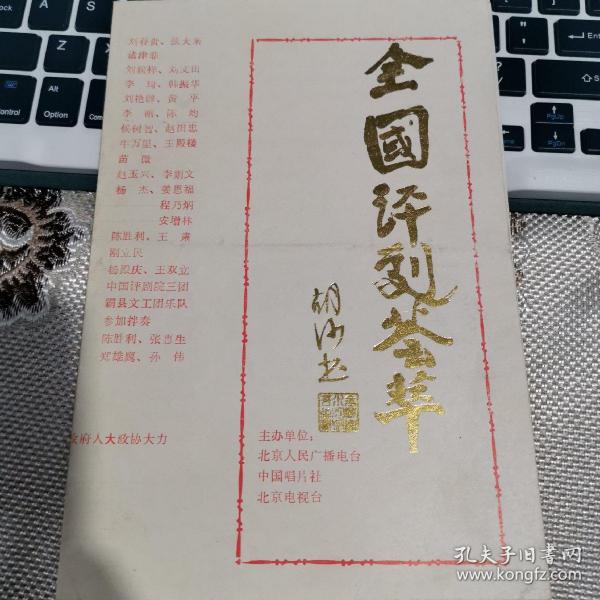 全國评剧荟萃
胡沙书
主办单位：
北京人民广播电台
中国唱片社
北京电视台
刘春贵、张大来
诸津非
李 珣、韩振华
刘艳卿、黄 平
李 丽、陈 均
侯树智、赵田忠
牛万里、王殿楼
苗 微
赵玉兴、李则文
杨 杰、姜恩福
程乃炳
安增林
陈胜利、王 肃
刚立民
杨殿庆、王双立
中国评剧院三团
霸县文工团乐队
参加拌奏
陈胜利、张吉生
郑雄魔、孙 伟
政府人大政协大力
孔夫子旧书网
www.kongfz.com